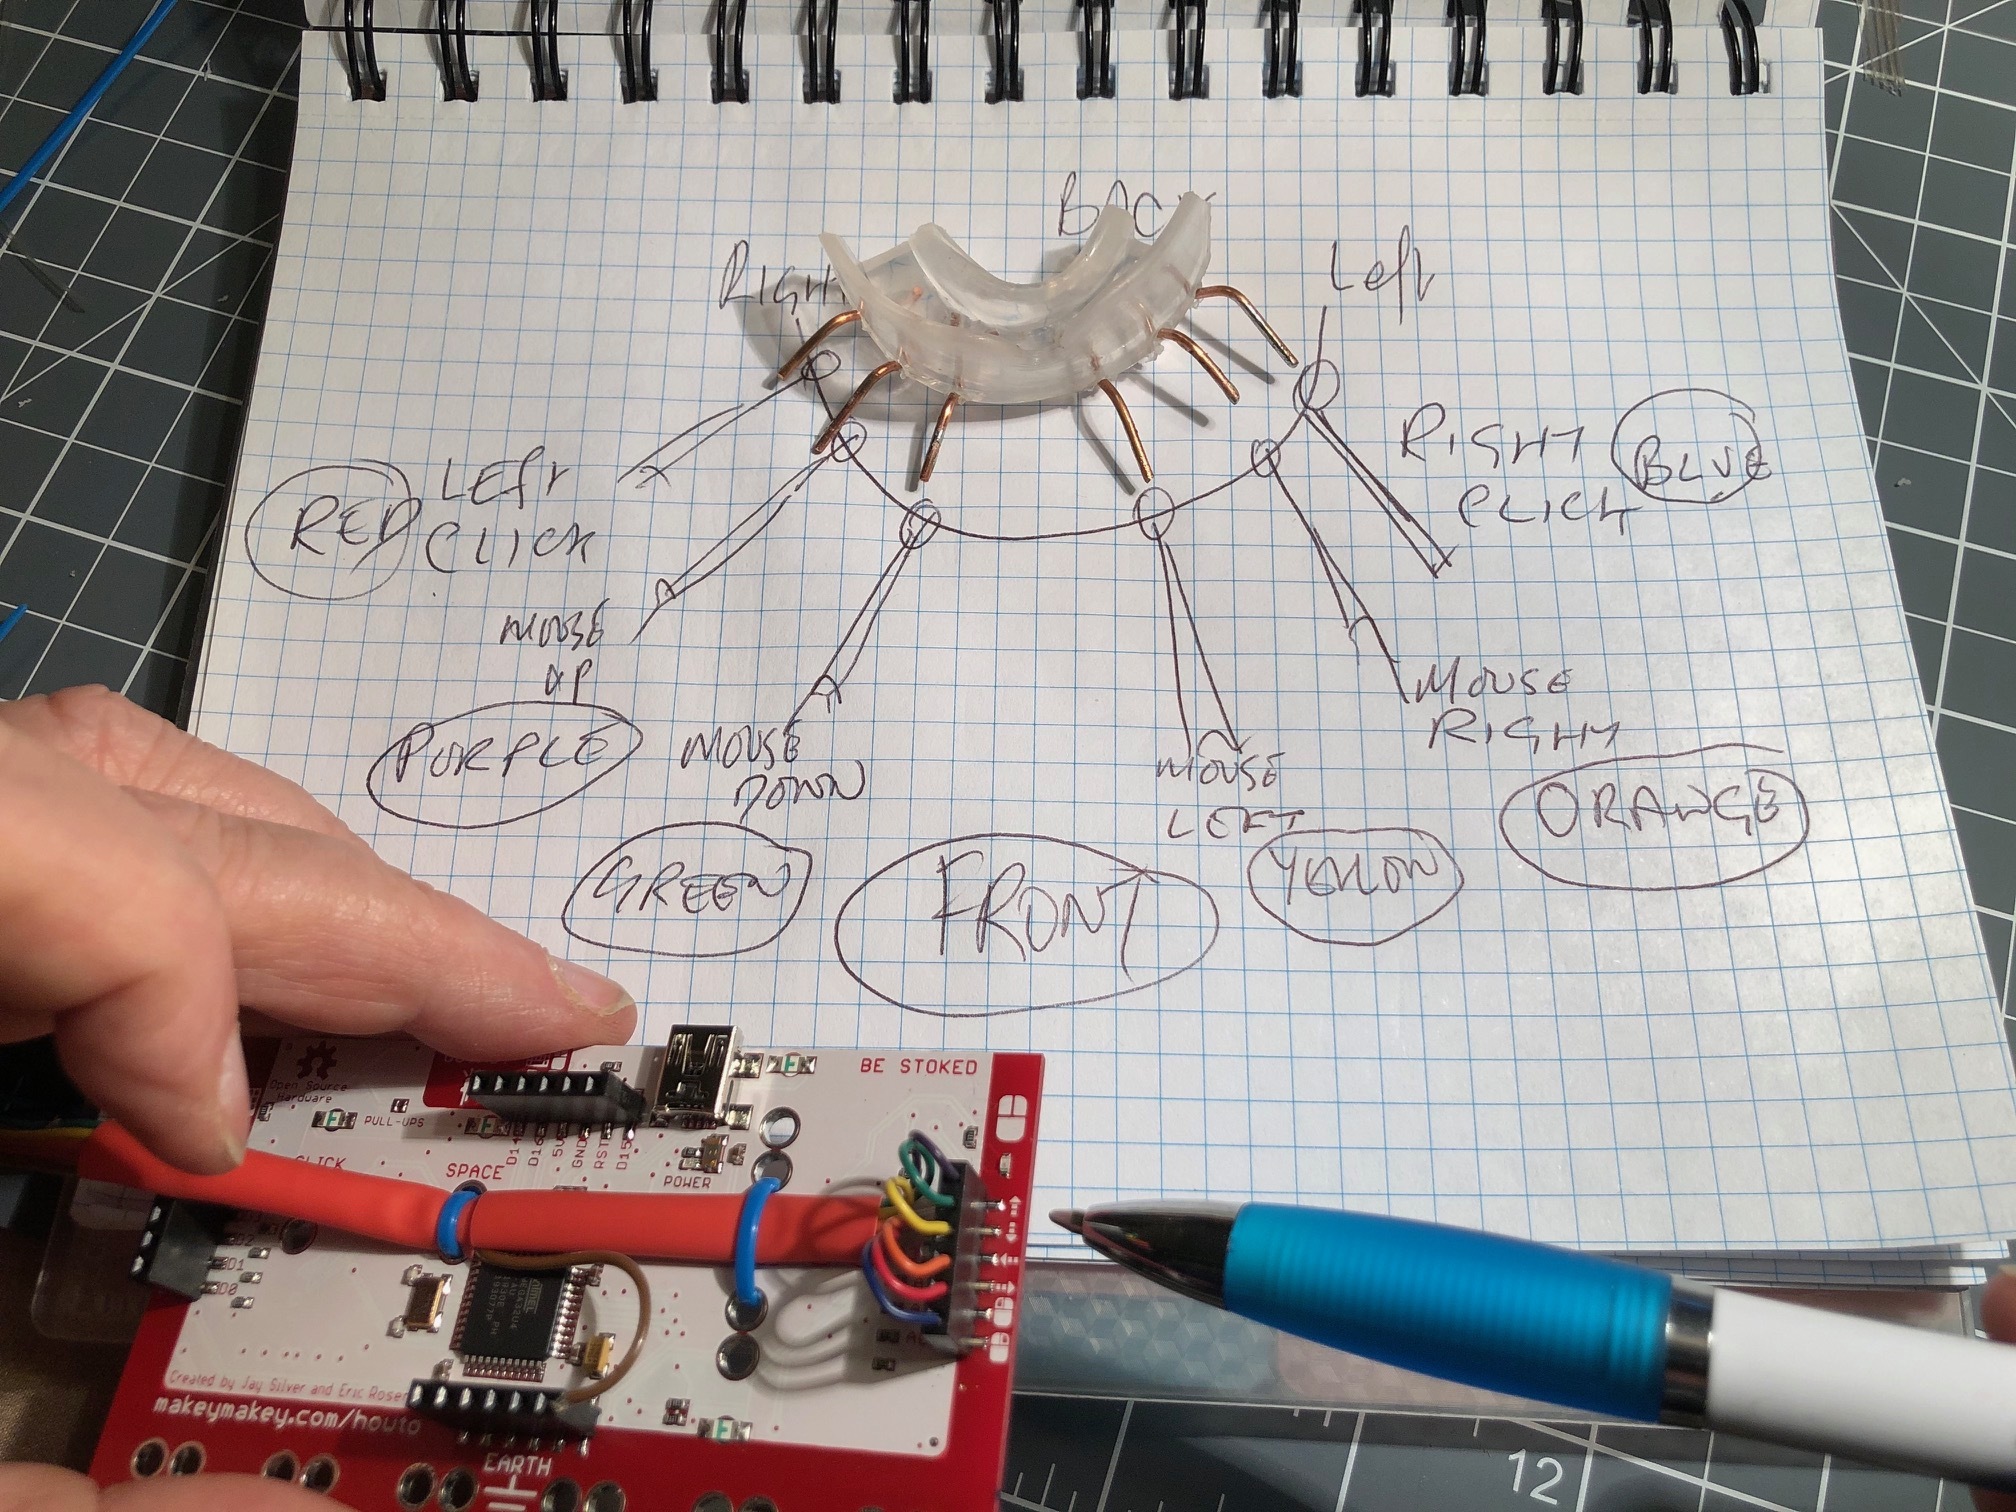 BACK
RIGHT
Left
LEFT
CLICK
RED
RIGHT
CLICK
BLUE
MOUSE
UP
PURPLE
MOUSE
DOWN
GREEN
MOUSE
LEFT
YELLOW
MOUSE
RIGHT
ORANGE
FRONT
BE STOKED
Open Source
Hardware
PULL-UPS
CLICK
SPACE
D14
D16
5V
GND
RST
D15
POWER
D2
D1
D0
Created by Jay Silver and Eric Rosen
makeymakey.com/howto
EARTH
12